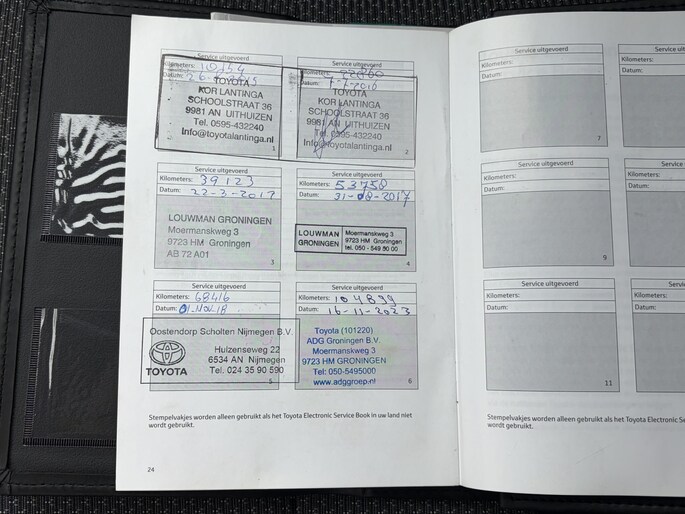 Service uitgevoerd
Kilometers:
Datum:
TOYOTA
KOR LANTINGA
SCHOOLSTRAAT 36
9981 AN UITHUIZEN
Tel. 0595-432240
Info@toyotalantinga.nl
1
Service uitgevoerd
Kilometers:
Datum:
TOYOTA
KOR LANTINGA
SCHOOLSTRAAT 36
9981 AN UITHUIZEN
Tel. 0595-432240
Info@toyotalantinga.nl
2
Service uitgevoerd
Kilometers: 39123
Datum: 22-3-2017
LOUWMAN GRONINGEN
Moermanskweg 3
9723 HM Groningen
AB 72 A01
3
Service uitgevoerd
Kilometers: 53758
Datum: 31-08-2017
LOUWMAN
GRONINGEN
Moermanskweg 3
9723 HM Groningen
tel. 050 - 549 50 00
4
Service uitgevoerd
Kilometers: 68416
Datum: 01-NOV.18
Oostendorp Scholten Nijmegen B.V.
TOYOTA
Huizenseweg 22
6534 AN Nijmegen
Tel. 024 35 90 590
5
Service uitgevoerd
Kilometers: 104899
Datum: 16-11-2023
Toyota (101220)
ADG Groningen B.V.
Moermanskweg 3
9723 HM Groningen
Tel: 050-5495000
www.adggroep.nl
6
Stempelvakjes worden alleen gebruikt als het Toyota Electronic Service Book in uw land niet
wordt gebruikt.
24
Service uitgevoerd
Kilometers:
Datum:
7
Service
Kilometers:
Datum:
Service uitgevoerd
Kilometers:
Datum:
9
Service
Kilometers:
Datum:
Service uitgevoerd
Kilometers:
Datum:
11
Service
Kilometers:
Datum:
Stempelvakjes worden alleen gebruikt als het Toyota Electronic Se
wordt gebruikt.